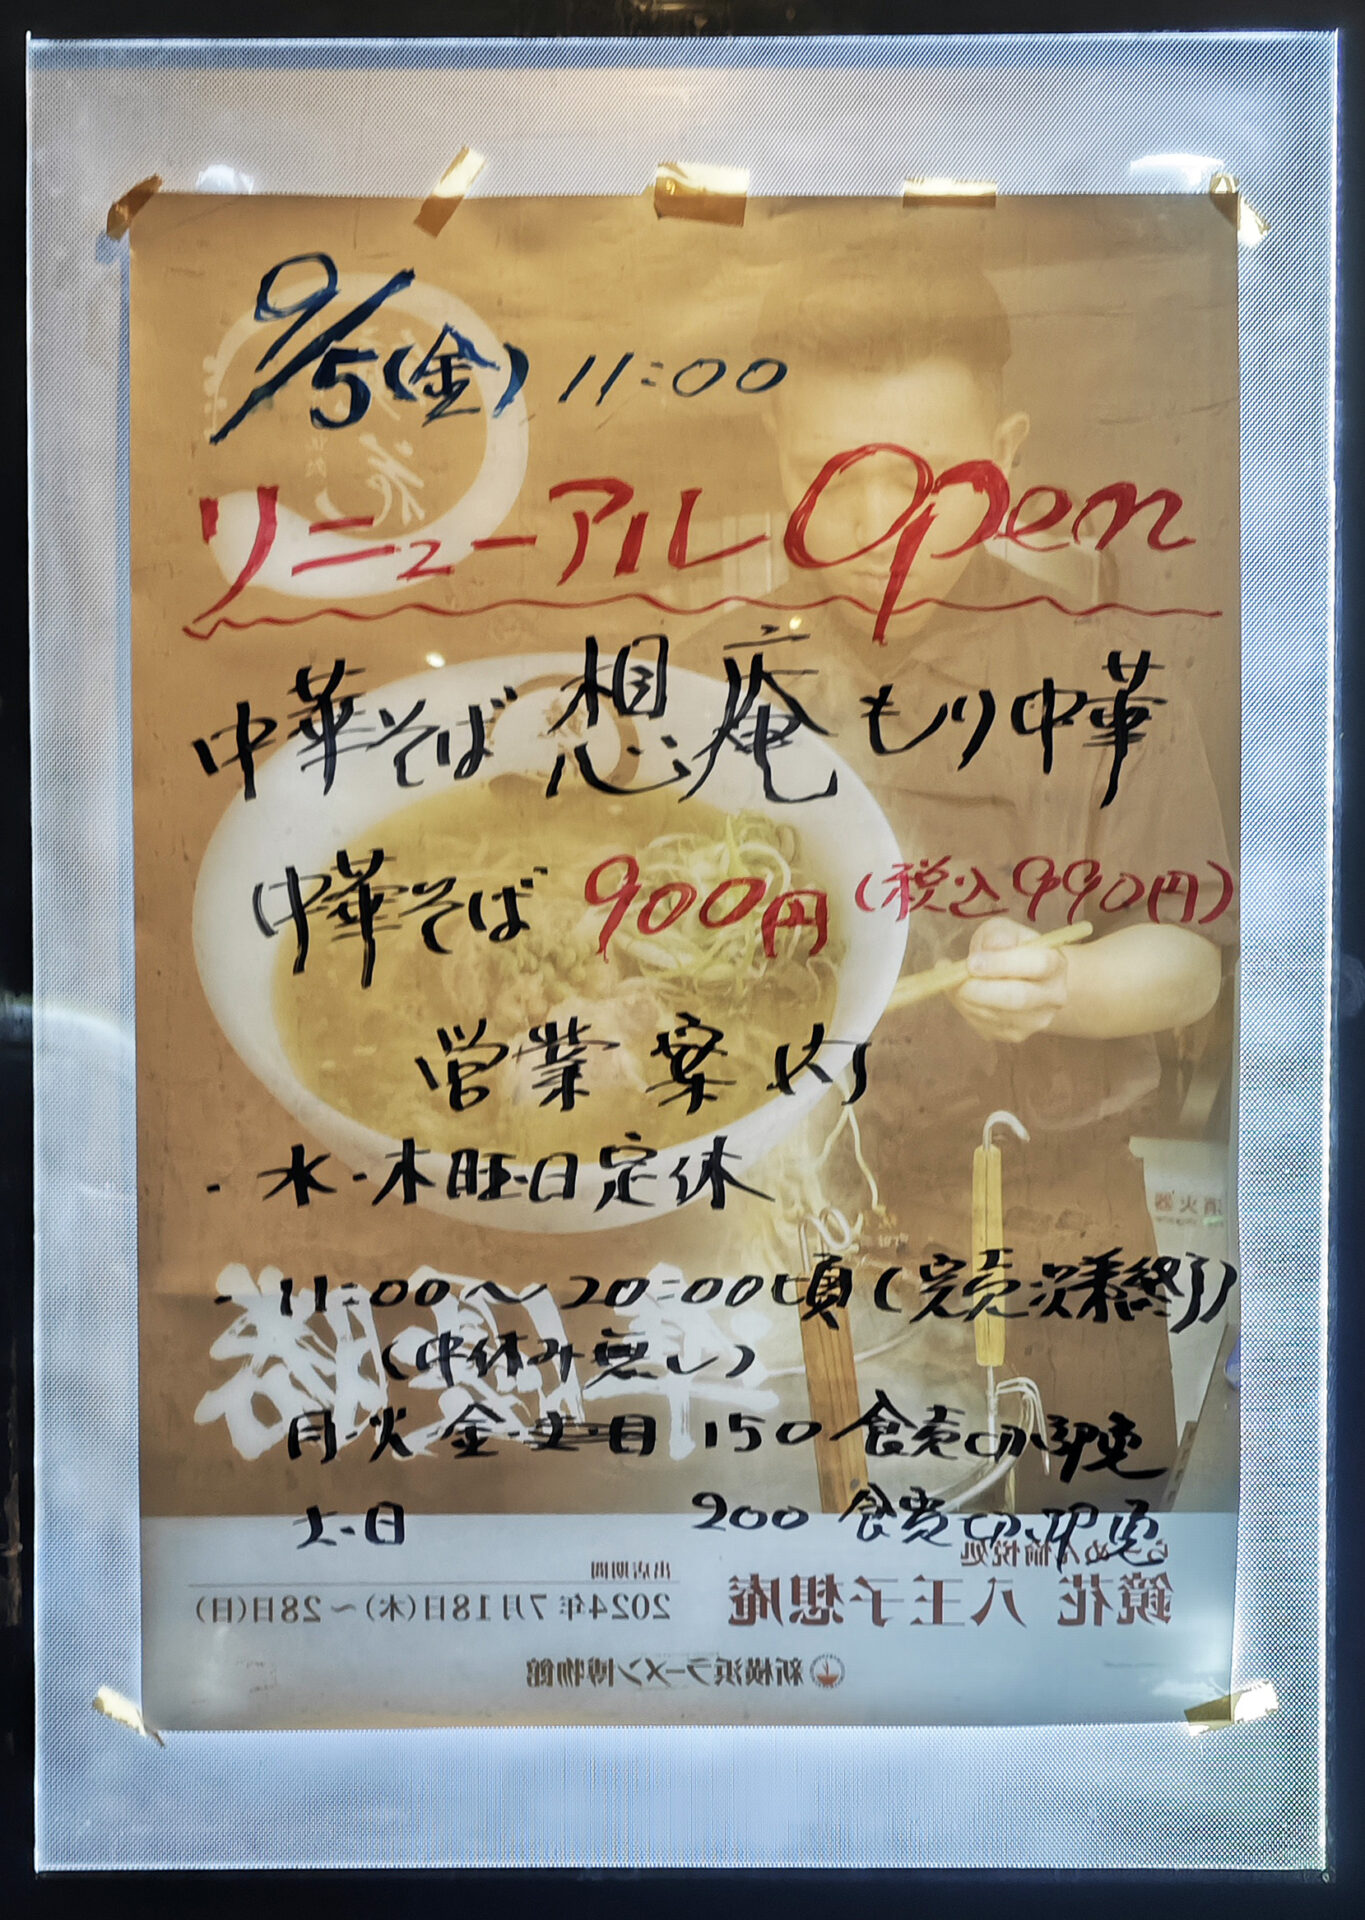 9/5(金) 11:00
リニューアルOpen
中華そば 想庵 もり中華
中華そば 900円 (税込990円)
営業案内
・水・木旺日定休
・11:00〜20:00頃(完売次第終了)
(中休み無し)
月・火・金・ 150食売り切れ
土・日 200食売り切れ
らーめん愉悦処
鏡花 八王子想庵
出店期間
2024年7月18日(木)〜28日(日)
新横浜ラーメン博物館
消火器